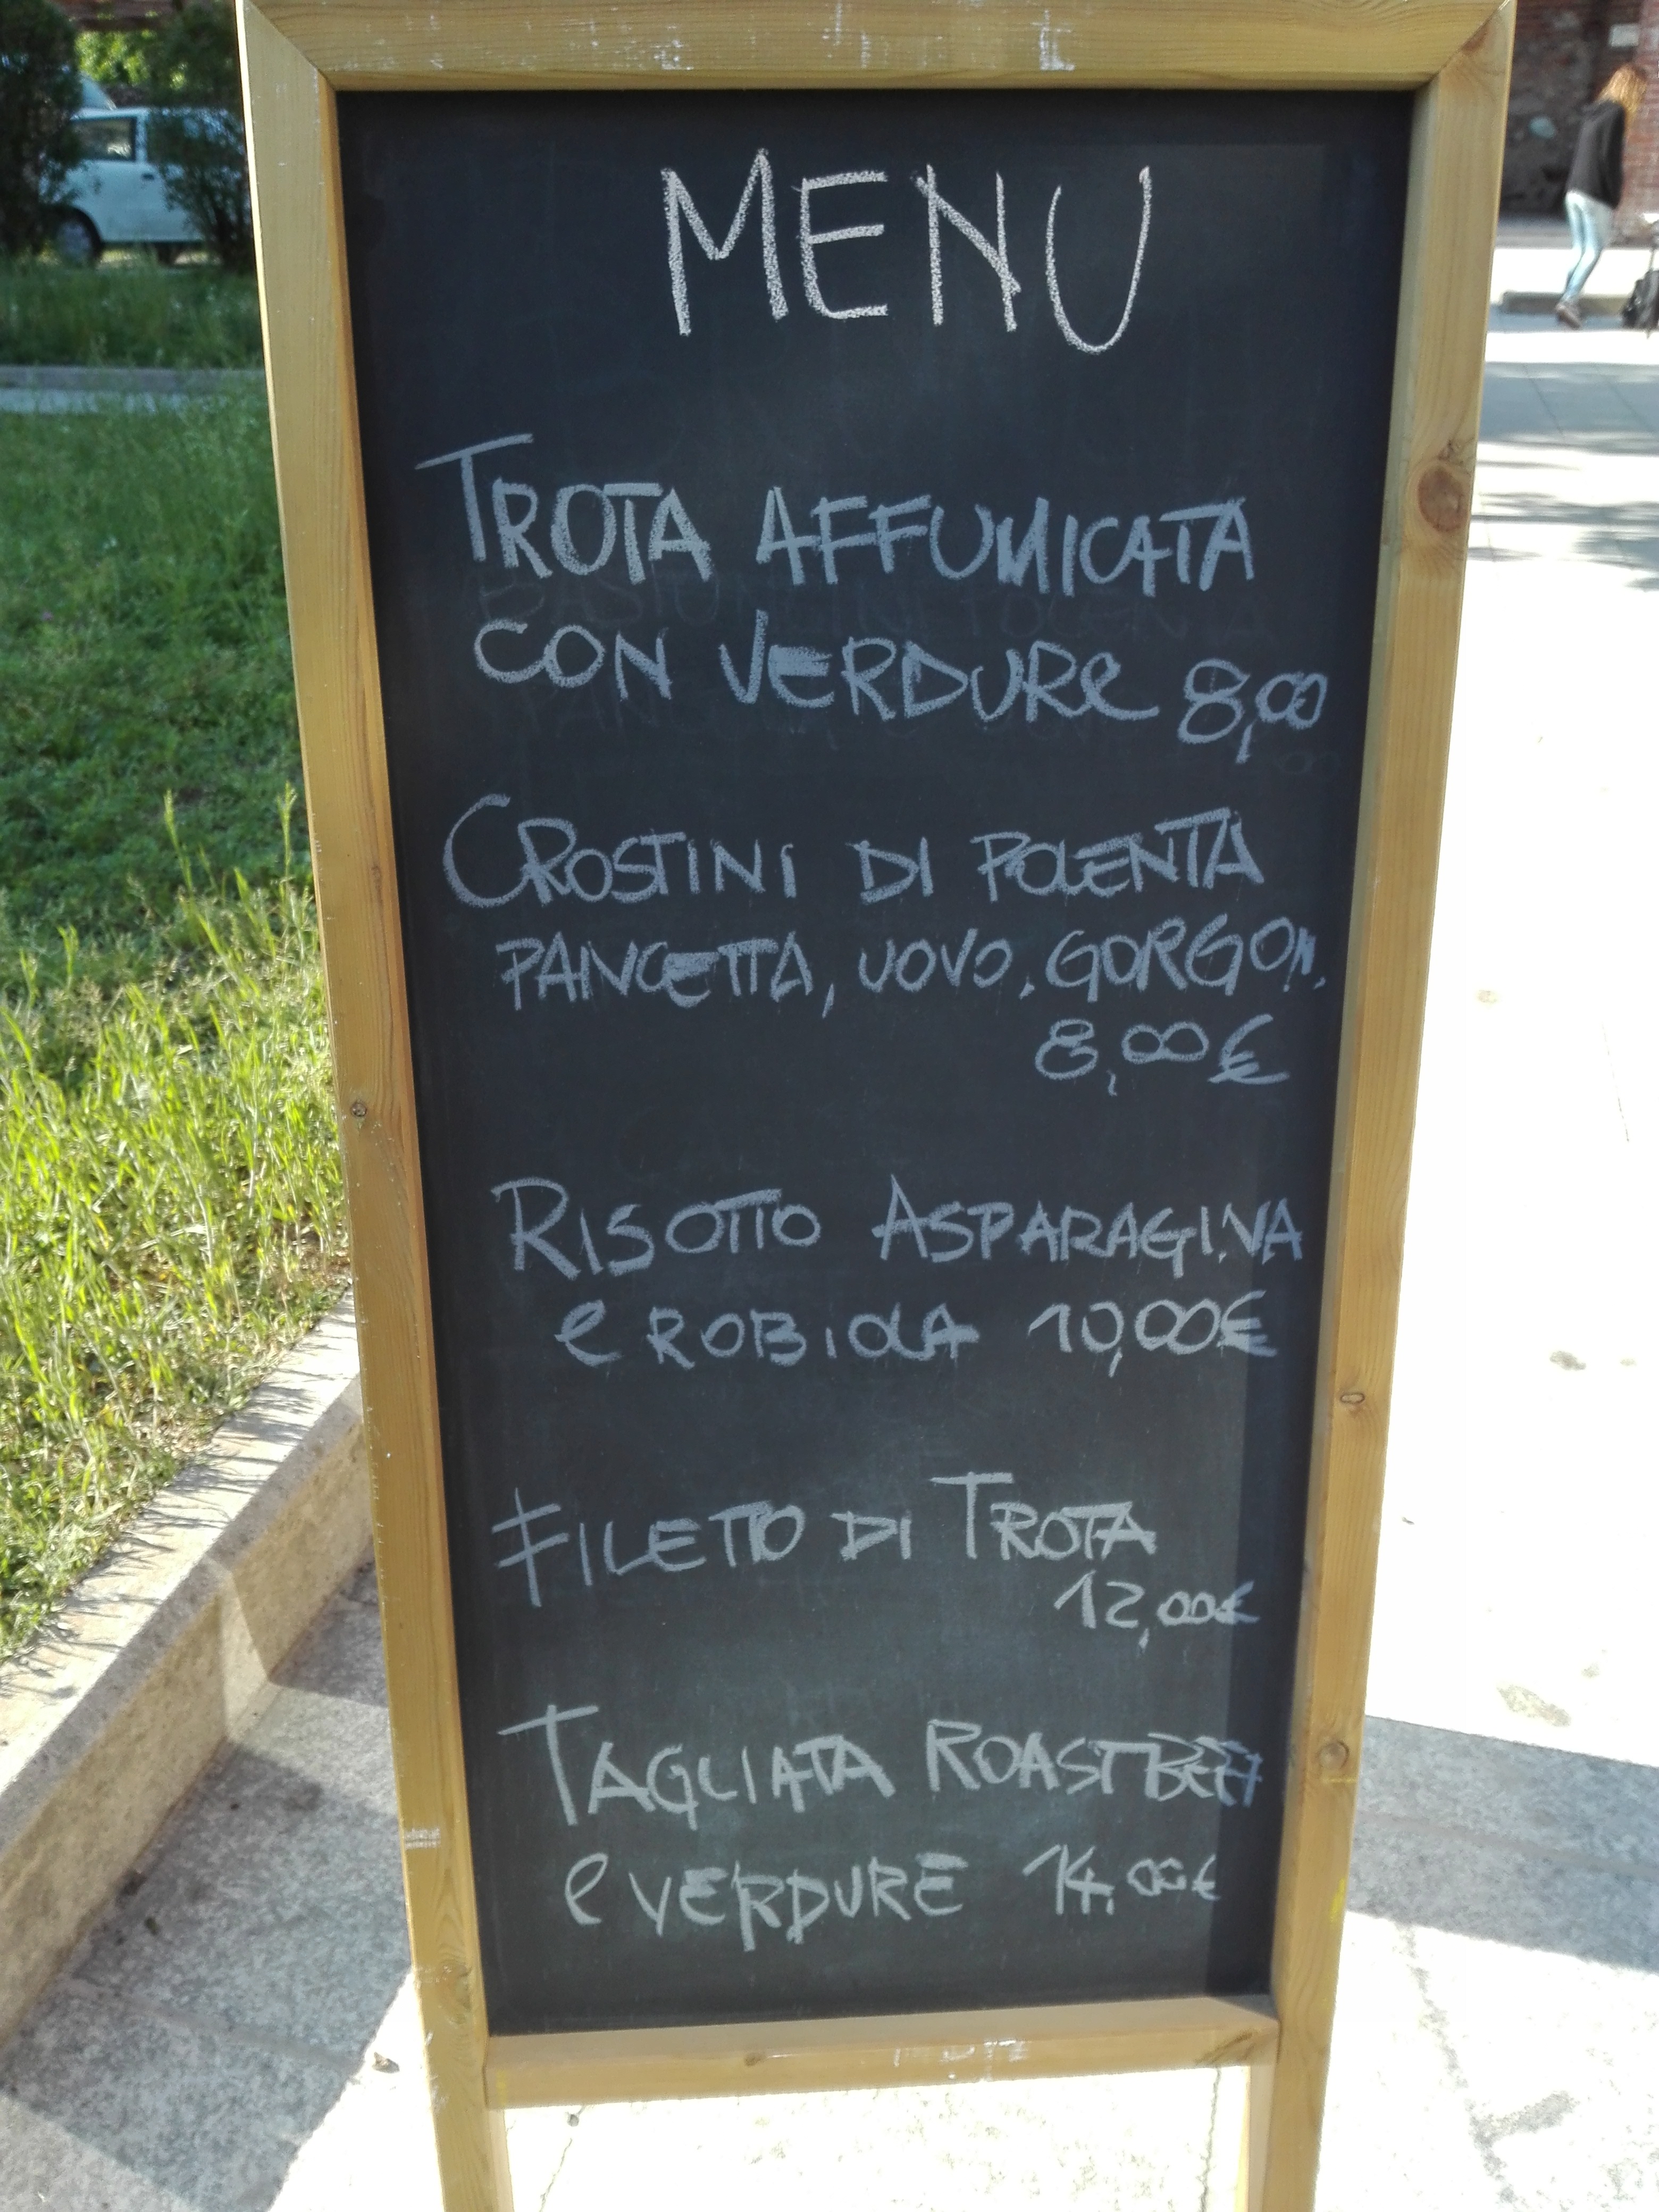 MENU
TROTA AFFUMICATA
CON VERDURE 8,00
CROSTINI DI POLENTA
PANCETTA, UOVO, GORGON.
8,00€
RISOTTO ASPARAGINA
e ROBIOLA 10,00€
FILETTO DI TROTA
12,00€
TAGLIATA ROASTBEEF
e VERDURE 14,00€